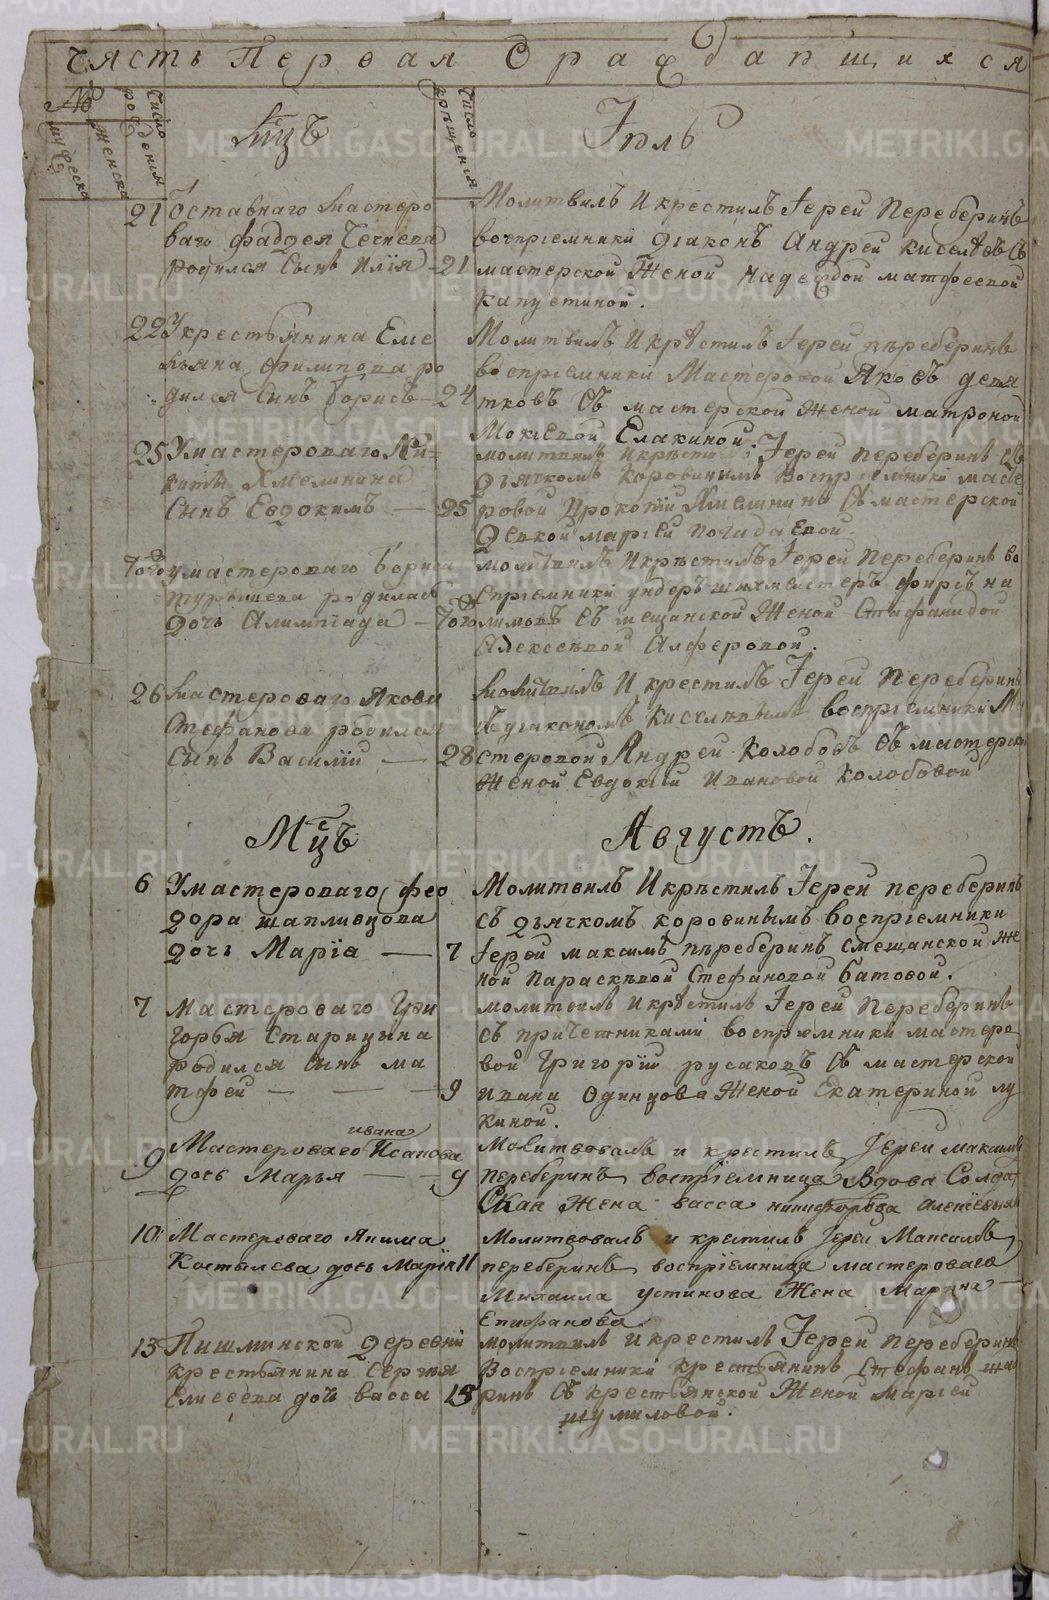 часть Первая О раждающихся
№
мужеска
женска
число рождения
Мцъ
число крещения
Июль
21 Оставнаго мастеро
ваго фаддея
родился Сынъ Илїя - 21
Молитвилъ И крестилъ Iерей Переберинъ
воспрiемники дiаконъ Андрей киселевъ съ
мастерской Женой надеждой матфеевой
капустиной.
22 У крестьянина Еме
льяна филипова ро
дился Сынъ Борисъ - 24
Молитвилъ И крѣстилъ Iерей пѣреберинъ
воспрiемники Мастеровой Яковъ девя
тковъ Съ мастерской женой матроной
Елакиной.
25 У мастероваго Ни-
киты Хмелинина
Сынъ Евдокимъ — 25
молитвилъ икрѣстилъ Iерей переберинъ съ
дьячкомъ коровинымъ воспрiемники масте
ровой Прокопiй Хмелининъ Съ мастерской
девкой марiей
Тогож умастероваго Бориса
родилась
дочь Алимпiада — Тогож
молитвилъ Икрѣстилъ Iерей Переберинъ во
спрiемники ундеръ шихмейстеръ фирсъ на
лимовъ Съ мещанской Женой Стефанидой
Алексеевой Алферовой.
26 Мастероваго Якова
Стефанова родился
Сынъ Василiй — 28
Молитвилъ И крестилъ Iерей Переберинъ
Съ дiакономъ киселевымъ воспрiемники Ма
стеровой Андрей Колобовъ Съ мастерской
Женой Евдокiей Ивановой Колобовой
Мцъ
Августъ.
6 Умастероваго фео
дора шапливцова
дочь Марїа — 7
Молитвилъ Икрѣстилъ Iерей переберинъ
съ дьячкомъ коровинымъ воспрiемники
Iерей максимъ пѣреберинъ смещанской же
ной параскѣвой Стефановой батовой.
7 мастероваго Гри
горья Старицына
родился сынъ ма
тфей — — — 9
молитвилъ икрѣстилъ Iерей переберинъ
съ причетниками воспрiемники мастеро
вой Григорiй русаковъ съ мастерской
ивана Одинцова Женой Екатериной лу
киной.
ивана
9 Мастероваго Исакова
дочь Марья — — 9
Молитвовалъ и крестилъ Iерей максимъ
переберинъ воспрiемница Вдова Солдат
Ская жена васса никифорова алексѣевыя
10 Мастероваго Якима
Костылева дочь Марїя 11
Молитвовалъ и крестилъ Iерей Максимъ
переберинъ воспрiемница мастероваго
Михаила устинова Жена Марина
Епифанова
13 Пишминской деревни
крестьянина Сергея
Елисеева дочь васса 13
молитвилъ икрестилъ Iерей переберинъ
Воспрiемники крестьянинъ Стефанъ ша
ринъ Съ крестьянской Женой марiей
шумиловой.
METRIKI.GASO-URAL.RU